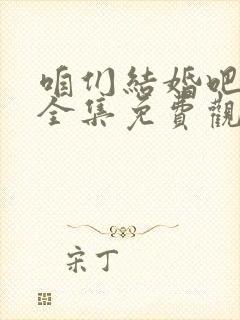 咱们結婚吧
全集免費觀
宋丁